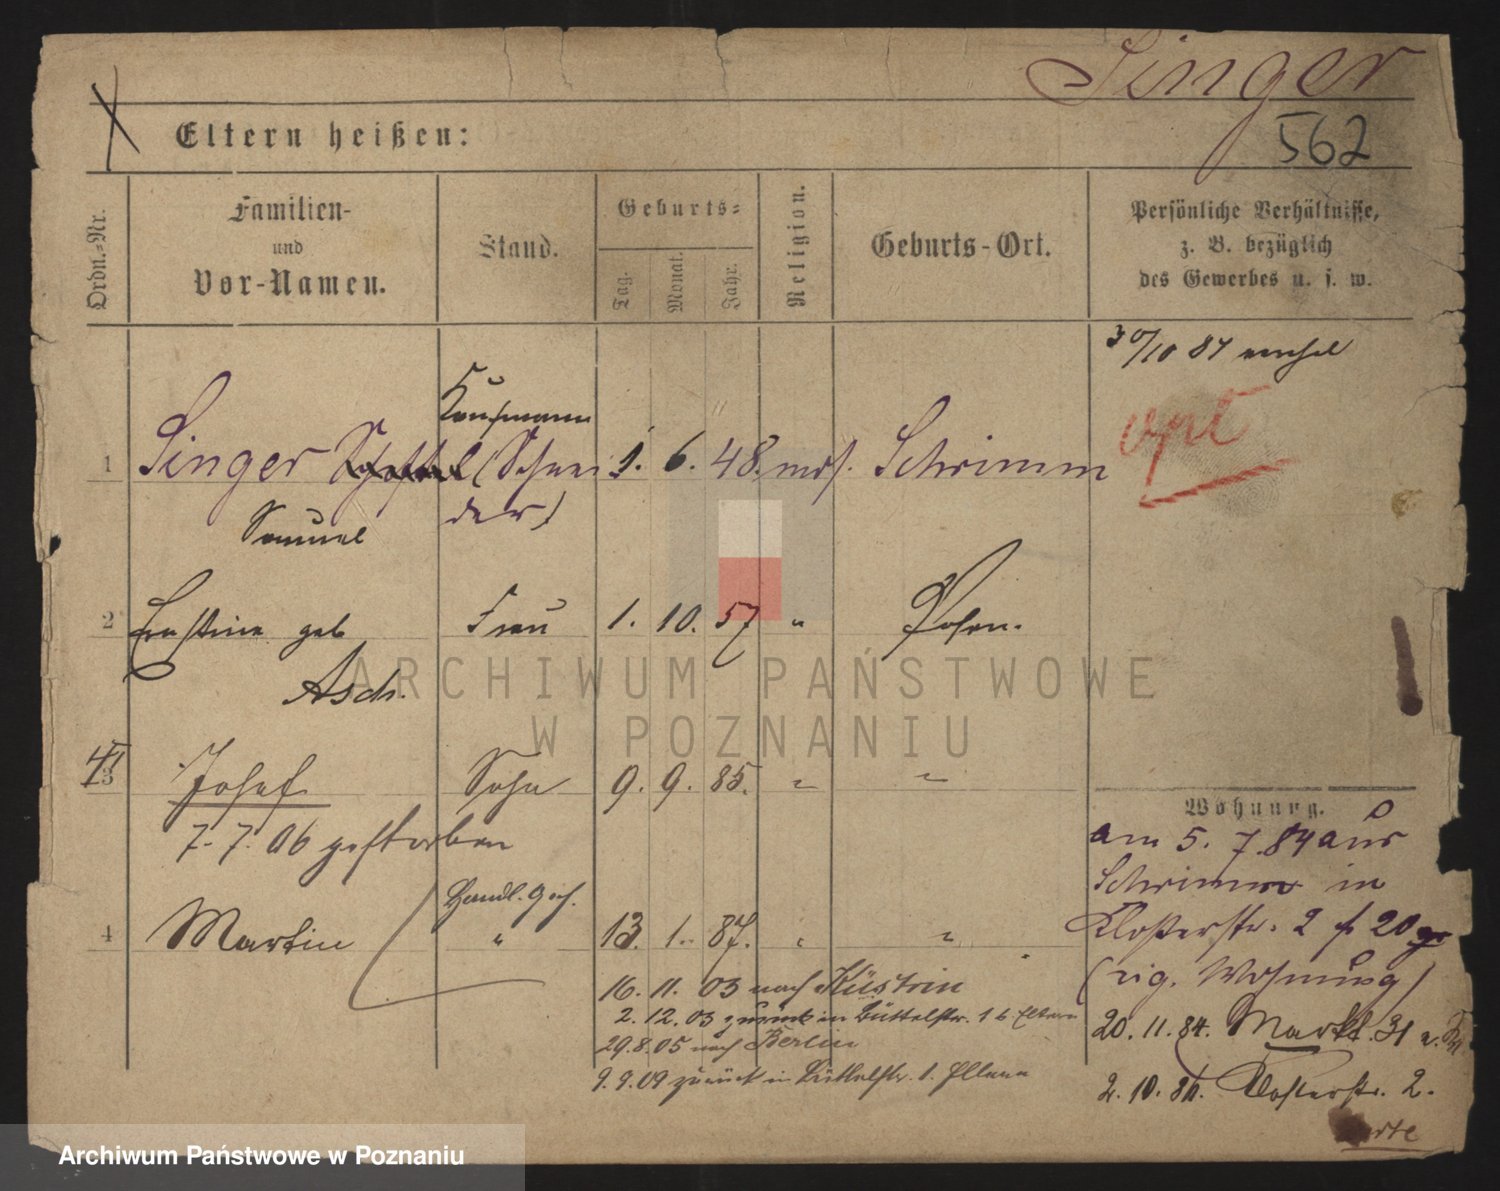 Singer
562
Eltern heißen:
Ordn.-Nr.
Familien-
und
Vor-Namen.
Stand.
Geburts-
Tag.
Monat.
Jahr.
Religion.
Geburts-Ort.
Persönliche Verhältnisse,
z. B. bezüglich
des Gewerbes u. s. w.
30/10 87
Kaufmann
1 Singer (Schnei 1. 6. 48. mos. Schrimm
der)
Samuel
2 Ernstine geb Frau 1. 10. 57 " Posen.
Asch.
3 Josef Sohn 9. 9. 85. " "
7. 7. 06 gestorben
Handl. Geh.
4 Martin " 13. 1. 87. " "
16. 11. 03 nach Küstrin
2. 12. 03 zurück in Büttelstr. 16 Eltern
29.8.05 nach Berlin
9. 9. 09 zurück in Büttelstr. 1.
Wohnung.
am 5. 7. 84 aus
Schrimm in
Klosterstr. 2
(eig. Wohnung)
20. 11. 84. Markt
2. 10. 86. Klosterstr. 2.
ARCHIWUM PAŃSTWOWE
W POZNANIU
Archiwum Państwowe w Poznaniu